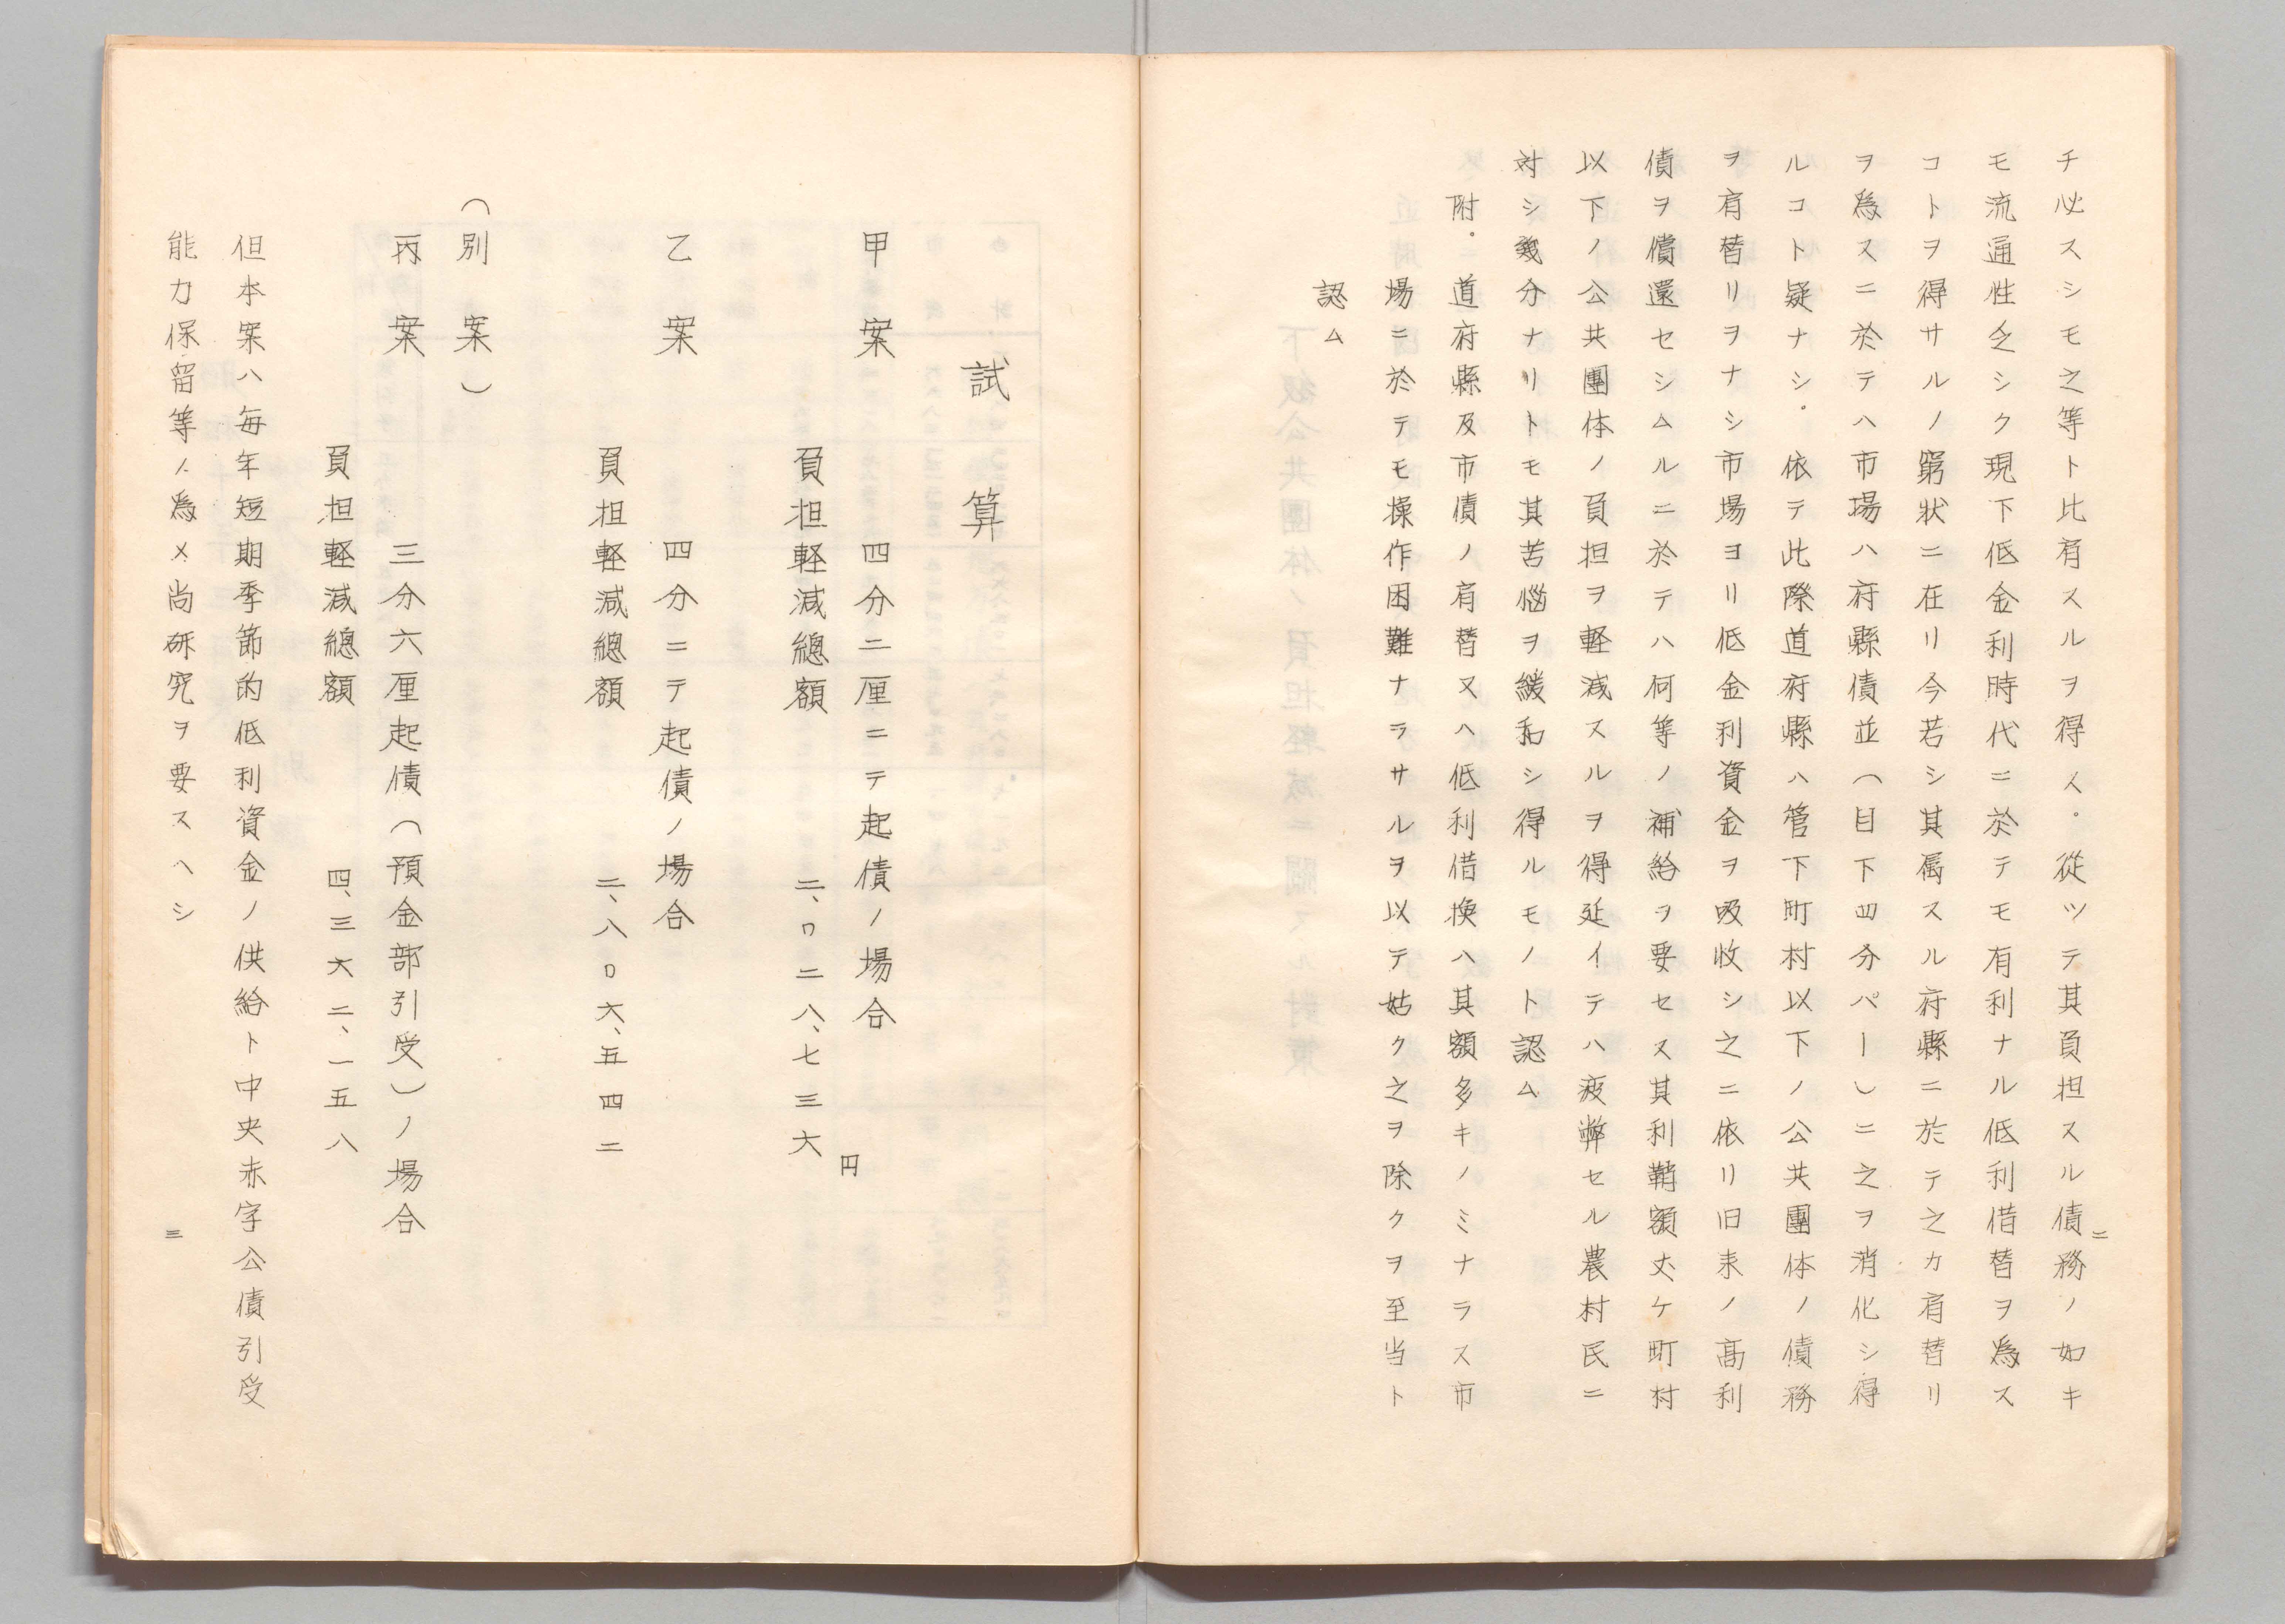 チ必スシモ之等ト比肩スルヲ得ス．従ツテ其負担スル債務ノ如キ
モ流通性乏シク現下低金利時代ニ於テモ有利ナル低利借替ヲ為ス
コトヲ得サルノ窮状ニ在リ今若シ其属スル府縣ニ於テ之カ肩替リ
ヲ為スニ於テハ市場ハ府縣債並（目下四分パー）ニ之ヲ消化シ得
ルコト疑ナシ．依テ此際道府縣ハ管下町村以下ノ公共團体ノ債務
ヲ肩替リヲナシ市場ヨリ低金利資金ヲ吸收シ之ニ依リ旧来ノ高利
債ヲ償還セシムルニ於テハ何等ノ補給ヲ要セス其利鞘額丈ケ町村
以下ノ公共團体ノ負担ヲ軽減スルヲ得延イテハ疲弊セル農村民ニ
対シ幾分ナリトモ其苦悩ヲ緩和シ得ルモノト認ム
附．道府縣及市債ノ肩替又ハ低利借換ハ其額多キノミナラス市
場ニ於テモ操作困難ナラサルヲ以テ姑ク之ヲ除クヲ至当ト
認ム
二
試算
甲案　四分二厘ニテ起債ノ場合
円
負担軽減總額　二、〇二八、七三六
乙案　四分ニテ起債ノ場合
負担軽減總額　二、八〇六、五四二
（別案）
丙案　三分六厘起債（預金部引受）ノ場合
負担軽減總額　四、三六二、一五八
但本案ハ毎年短期季節的低利資金ノ供給ト中央赤字公債引受
能力保留等ノ為メ尚研究ヲ要スヘシ
三